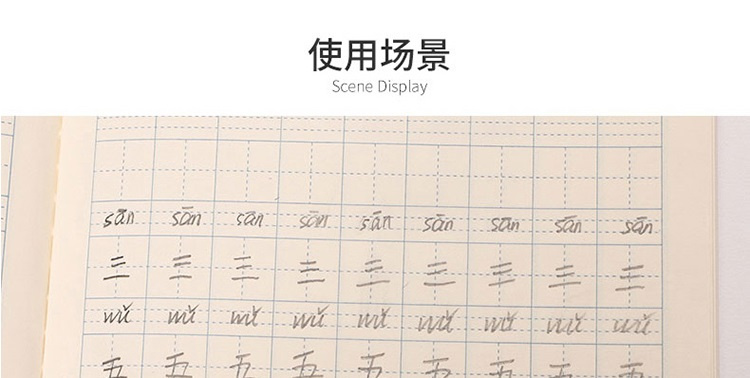 使用场景
Scene Display
sān sān sān sān sān sān sān sān sān
三 三 三 三 三 三 三 三 三
wǔ wǔ wǔ wǔ wǔ wǔ wǔ wǔ wǔ
五 五 五 五 五 五 五 五 五